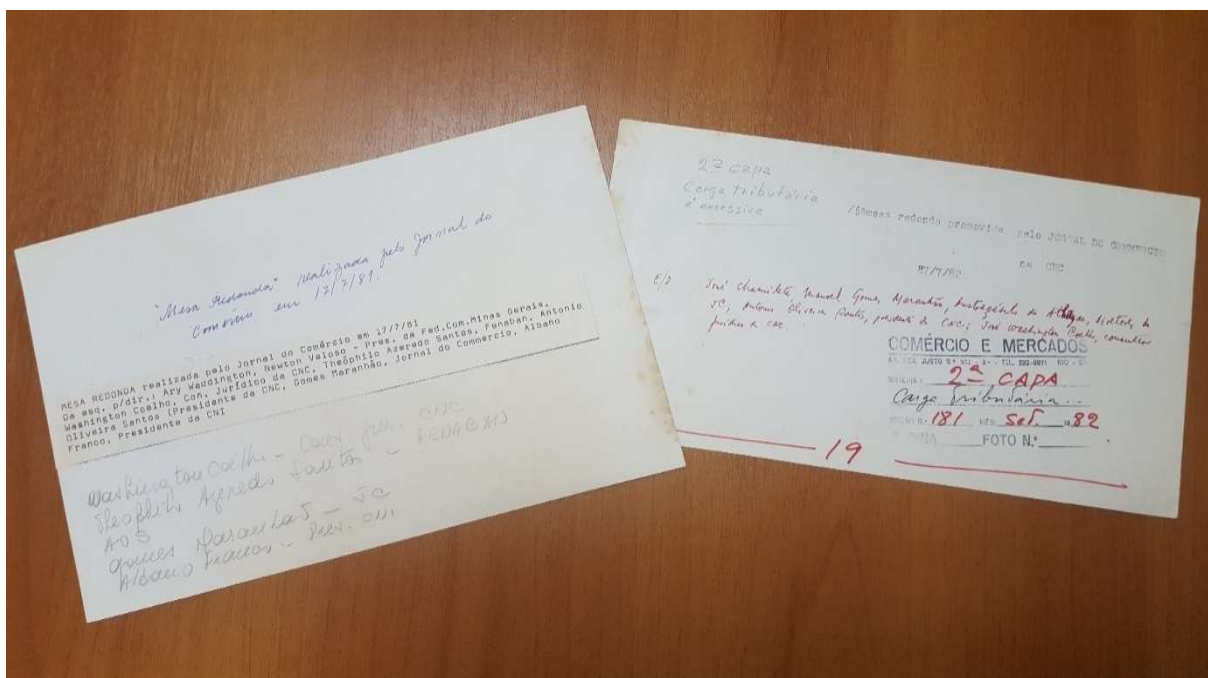 "Mesa Redonda" realizada pelo Jornal do
Comércio em 17/7/81.
MESA REDONDA realizada pelo Jornal do Comércio em 17/7/81
Da esq. p/dir.: Ary Waddington, Newton Veloso - Pres. da Fed.Com.Minas Gerais,
Washington Coelho, Con. Jurídico da CNC, Theóphilo Azeredo Santos, Fenaban, Antonio
Oliveira Santos (Presidente da CNC, Gomes Maranhão, Jornal do Commercio, Albano
Franco, Presidente da CNI
Washington Coelho - Jur. CNC
Theophilo Azeredo Santos - FENABAN
AOS
Gomes Maranhão - JC
Albano Franco - Pres. CNI
2ª capa
Carga tributária
é excessiva
mesa redonda promovida pelo JORNAL DO COMMERCIO
na CNC
E/D José Chamilete, Manoel Gomes Maranhão, Austregésilo de Athayde, diretor do
JC, Antonio Oliveira Santos, presidente da CNC; José Washington Coelho, consultor
jurídico da CNC.
COMÉRCIO E MERCADOS
2ª CAPA
Carga Tributária...
181 set. 82
FOTO N.º
19